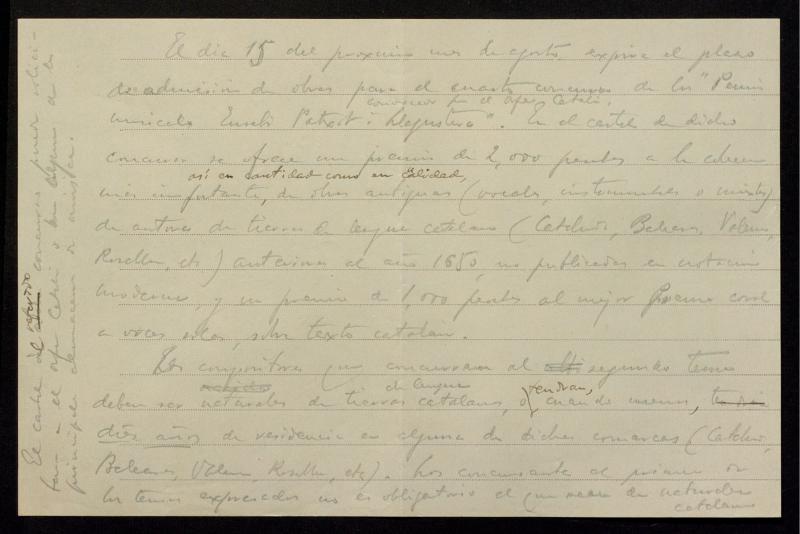 El dia 15 del proximo mes de agosto expira el plazo
de admisión de obras para el cuarto concurso de los "Premis
convocado por el Orfeó Català.
musicals Eusebi Patxot i Llagustera". En el cartel de dicho
concurso se ofrece un premio de 2,000 pesetas a la colección
así en cantidad como en calidad,
más importante, de obras antiguas (vocales, instrumentales o mixtas)
de autores de tierras de lengua catalana (Cataluña, Baleares, Valencia,
Rosellón, etc) anteriores al año 1650, no publicadas en notación
moderna, y un premio de 1,000 pesetas al mejor Poema coral
a voces solas, sobre texto catalán.
Los compositores que concurran al segundo tema
de lengua
deben ser naturales de tierras catalanas, o tendran, cuando menos,
diez años de residencia en alguna de dichas comarcas (Cataluña,
Baleares, Valencia, Rosellón, etc). Los concursantes al primero de
los temas expresados no es obligatorio el que sean de naturaleza
catalana
El cartel del referido concurso puede solici-
tarse en el Orfeó Català o en alguno de los
principales almacenes de música.